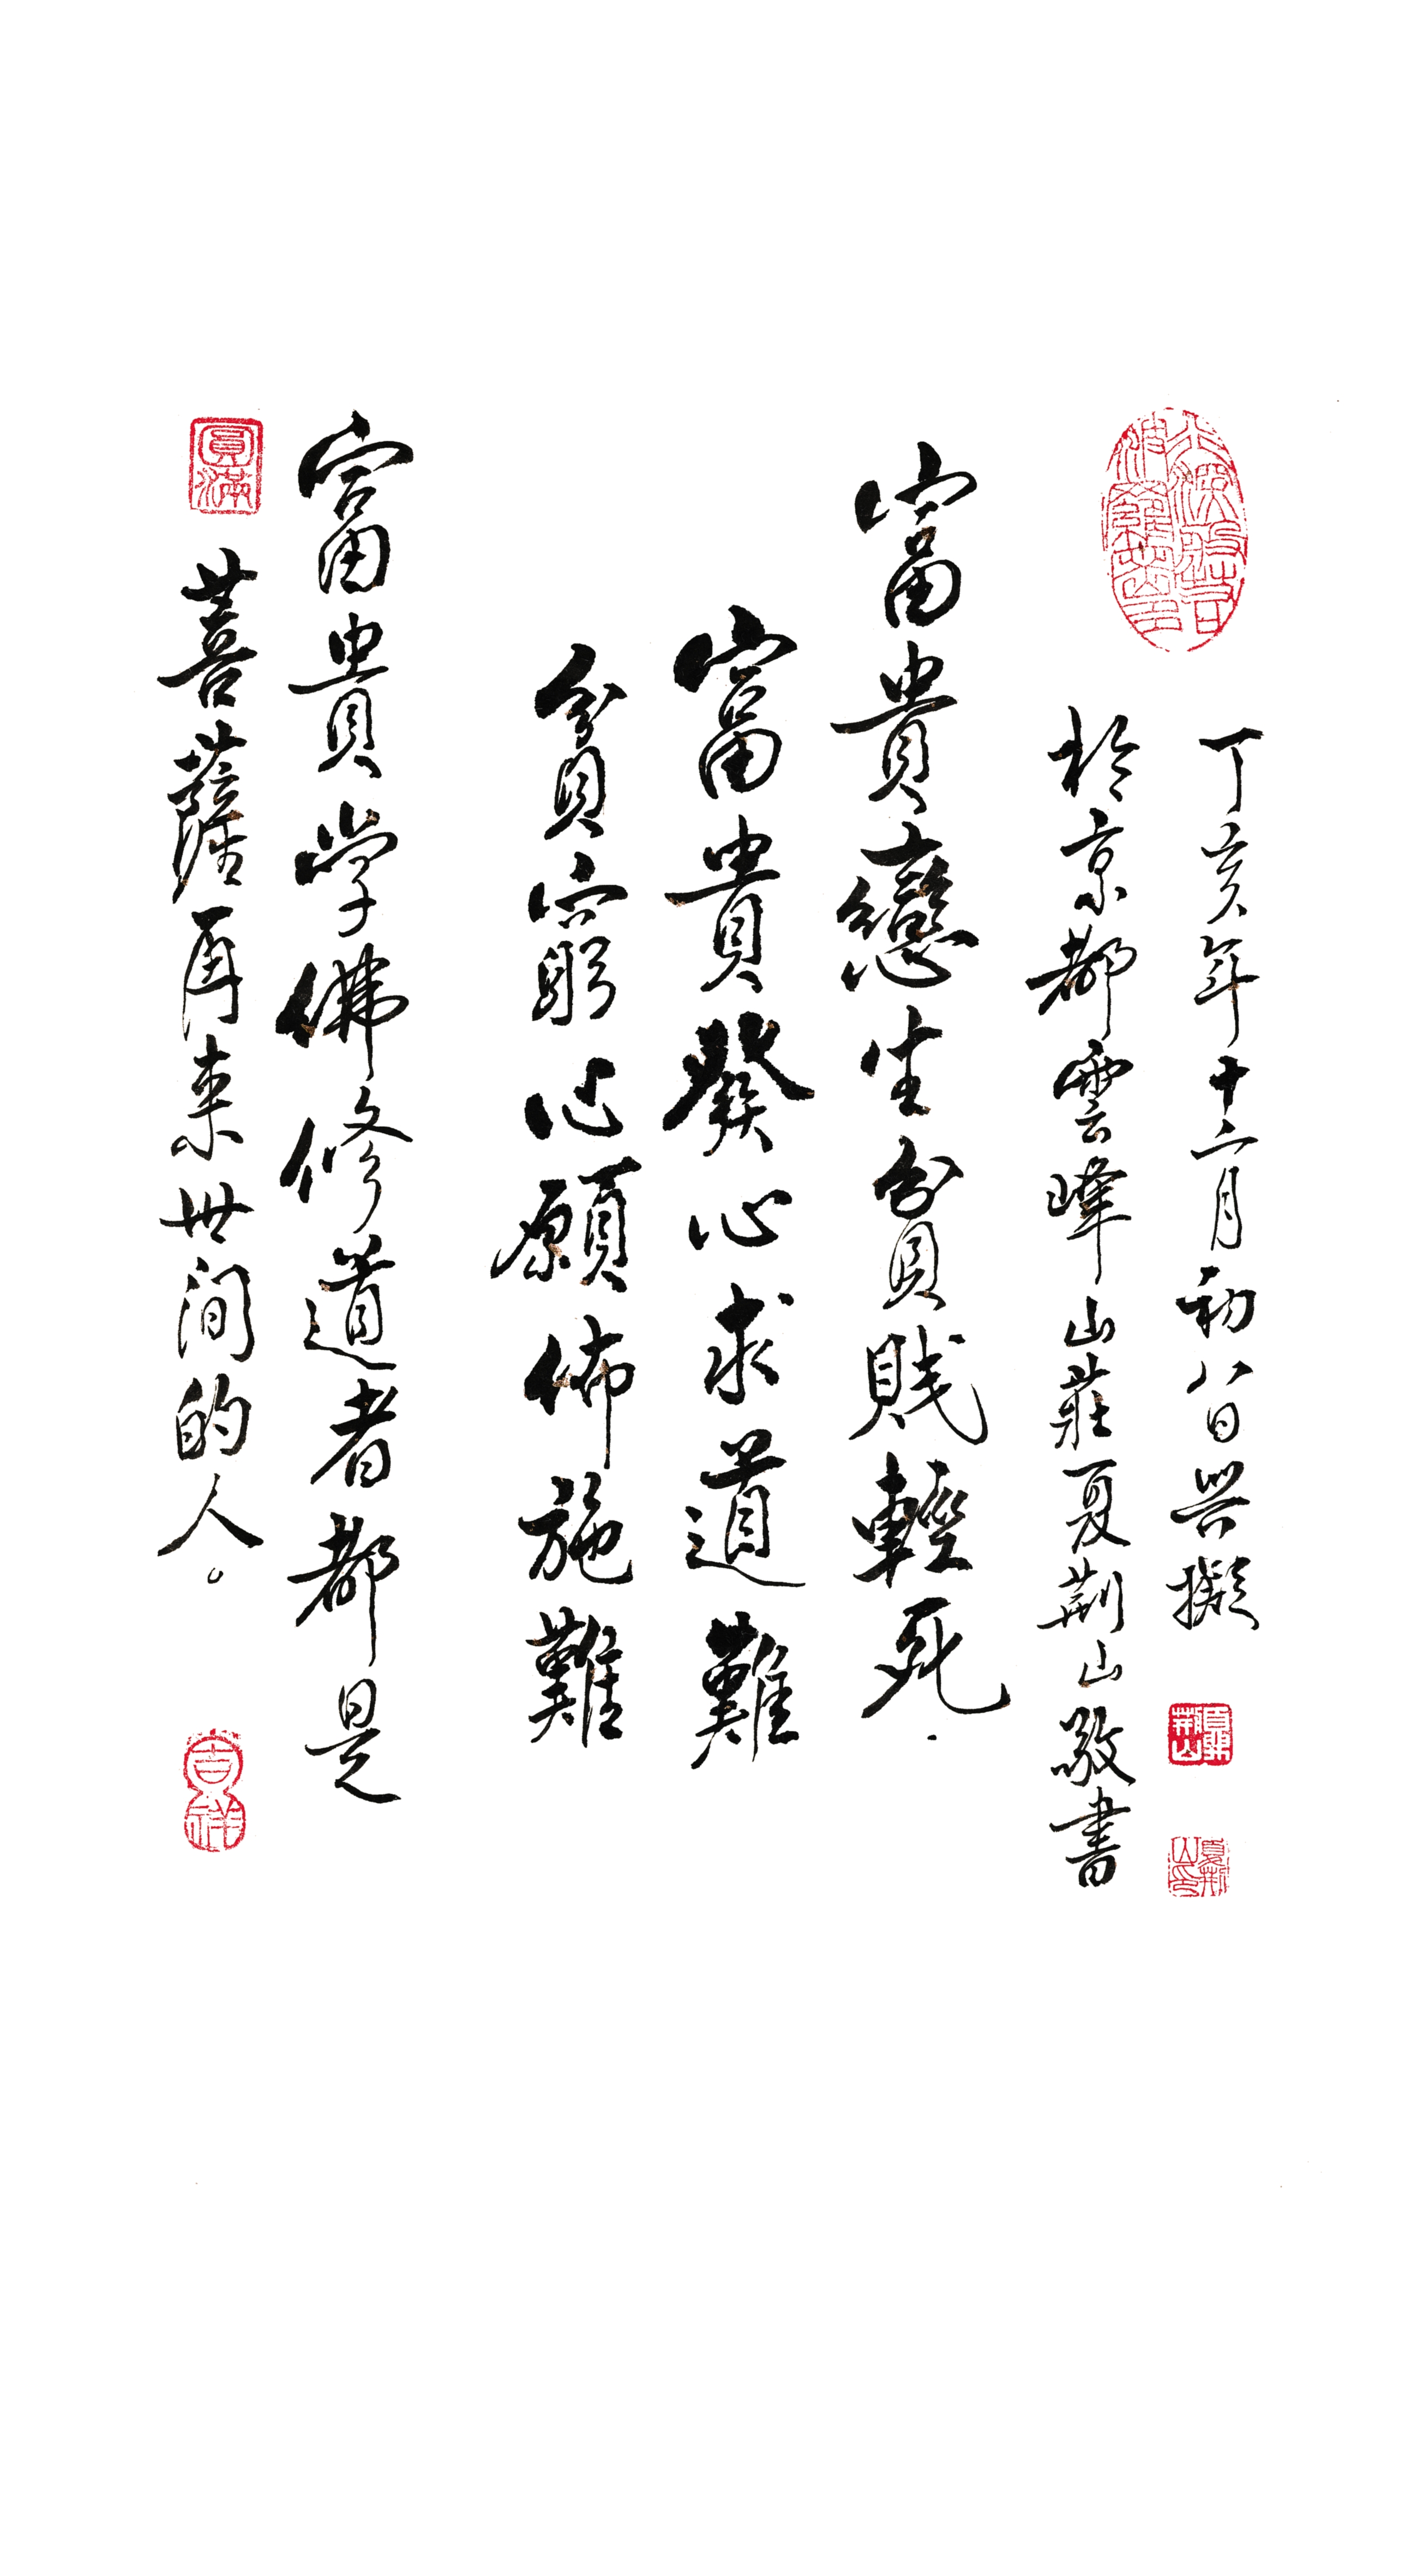 丁亥年十二月初八日興擬
於京都雲峰山莊夏荊山敬書
富貴戀生貧賤輕死.
富貴發心求道難
貧窮心願佈施難
富貴学佛修道者都是
菩薩再来世间的人。
圓滿
吉祥
夏荊山印